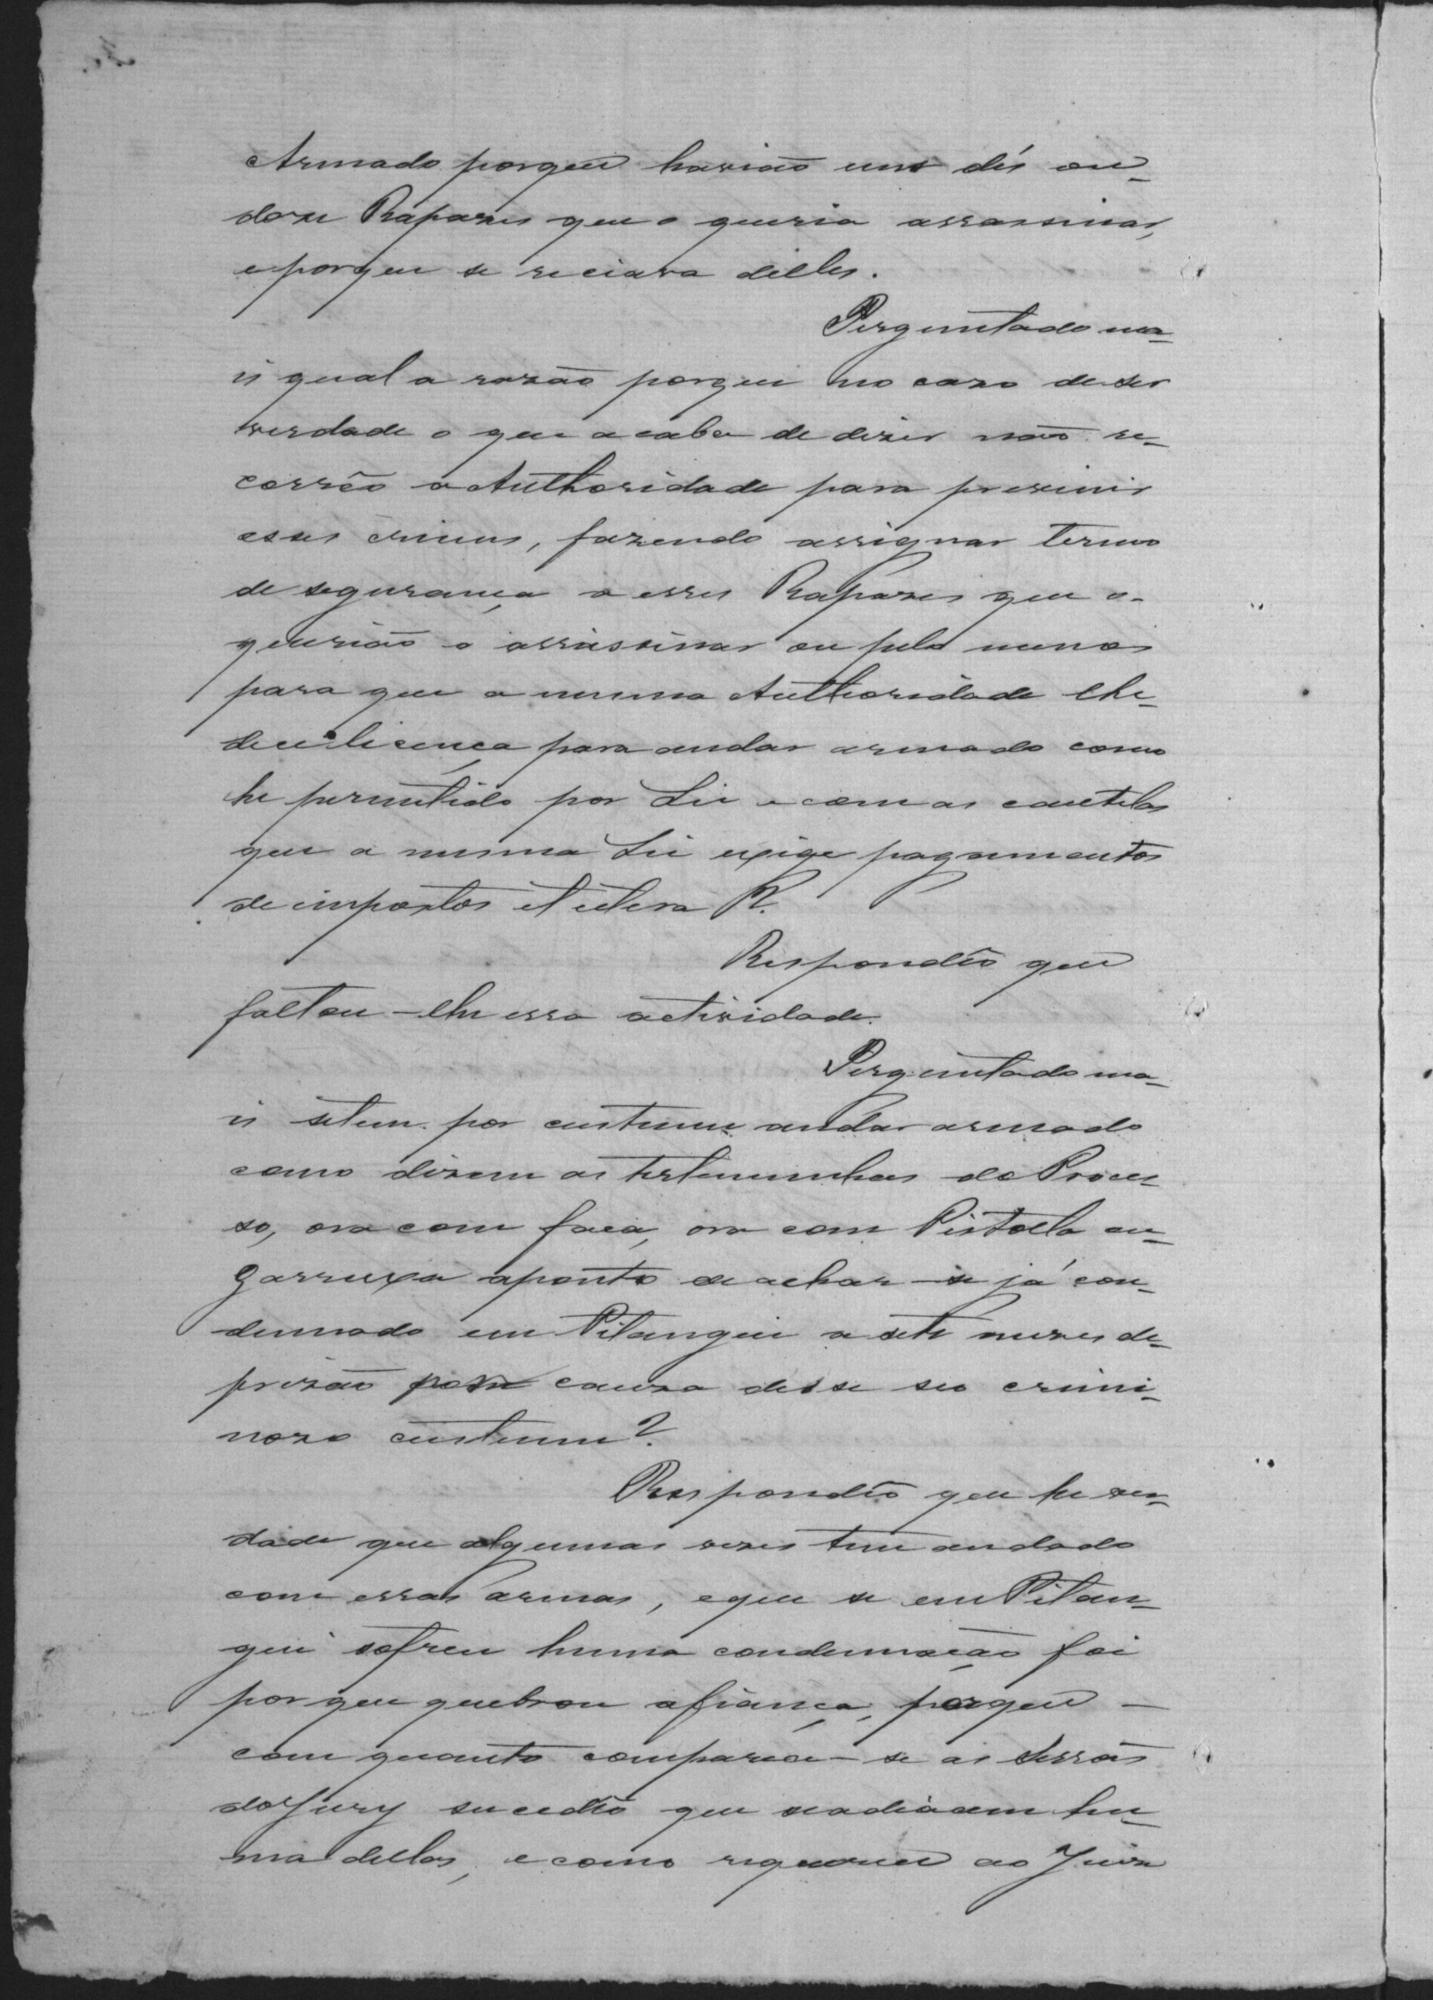 Armado porque havião uns dés ou
doze Rapazes que o queria assassinar,
e porque se reciava delles.
Perguntado ma-
is qual a razão porque no cazo de ser
verdade o que acaba de dizer não re-
correo a Authoridade para previnir
esses crimes, fazendo assignar termo
de segurança a esses Rapazes que o-
querião o assassinar ou pelo menos
para que a mesma Authoridade lhe-
deceliçença para andar armado como
he permitido por Lei e com as cautelas
que a mesma Lei exige pagamentos
de impostos et cetera R.
Respondeo que
faltou-lhe essa actividade.
Perguntado ma-
is se tem por custume andar armado
como dizem as testemunhas do Proces-
so, ora com faca, ora com Pistolla ou-
garruxa aponto de achar-se já con-
demnado em Pitangui a sete mezes de-
prizão por cauza desse seo crimi-
nozo custume?
Respondeo que he ver-
dade que algumas vezes tem andado
com essas armas, e que se em Pitan-
gui sofreu huma condemnação foi
por que quebrou a fiança, porque -
com quanto comparece-se as Sessões
do Jury sucedeo que se adiaem hu-
ma dellas, e como requereu ao Juiz